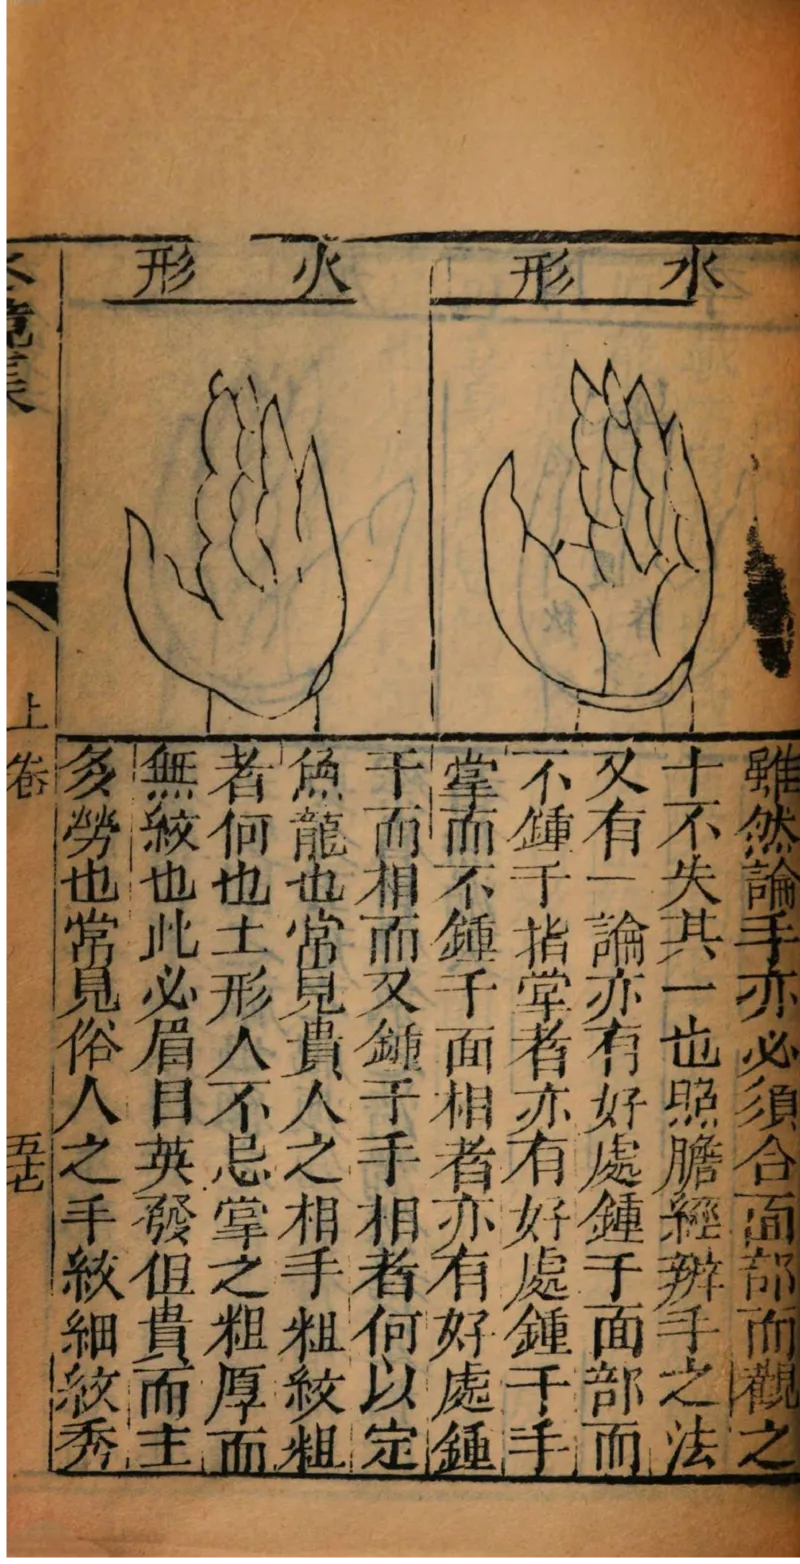 水形
火形
雖然論手亦必須合面部而觀之
十不失其一也照膽經辨手之法
又有一論亦有好處鍾于面部而
不鍾于指掌者亦有好處鍾于手
掌而不鍾于面相者亦有好處鍾
于而相而又鍾于手相者何以定
魚龍也常見貴人之相手粗紋粗
者何也土形人不忌掌之粗厚而
無紋也此必眉目英發但貴而主
多勞也常見俗人之手紋細紋秀
水鏡集
上卷
五十七